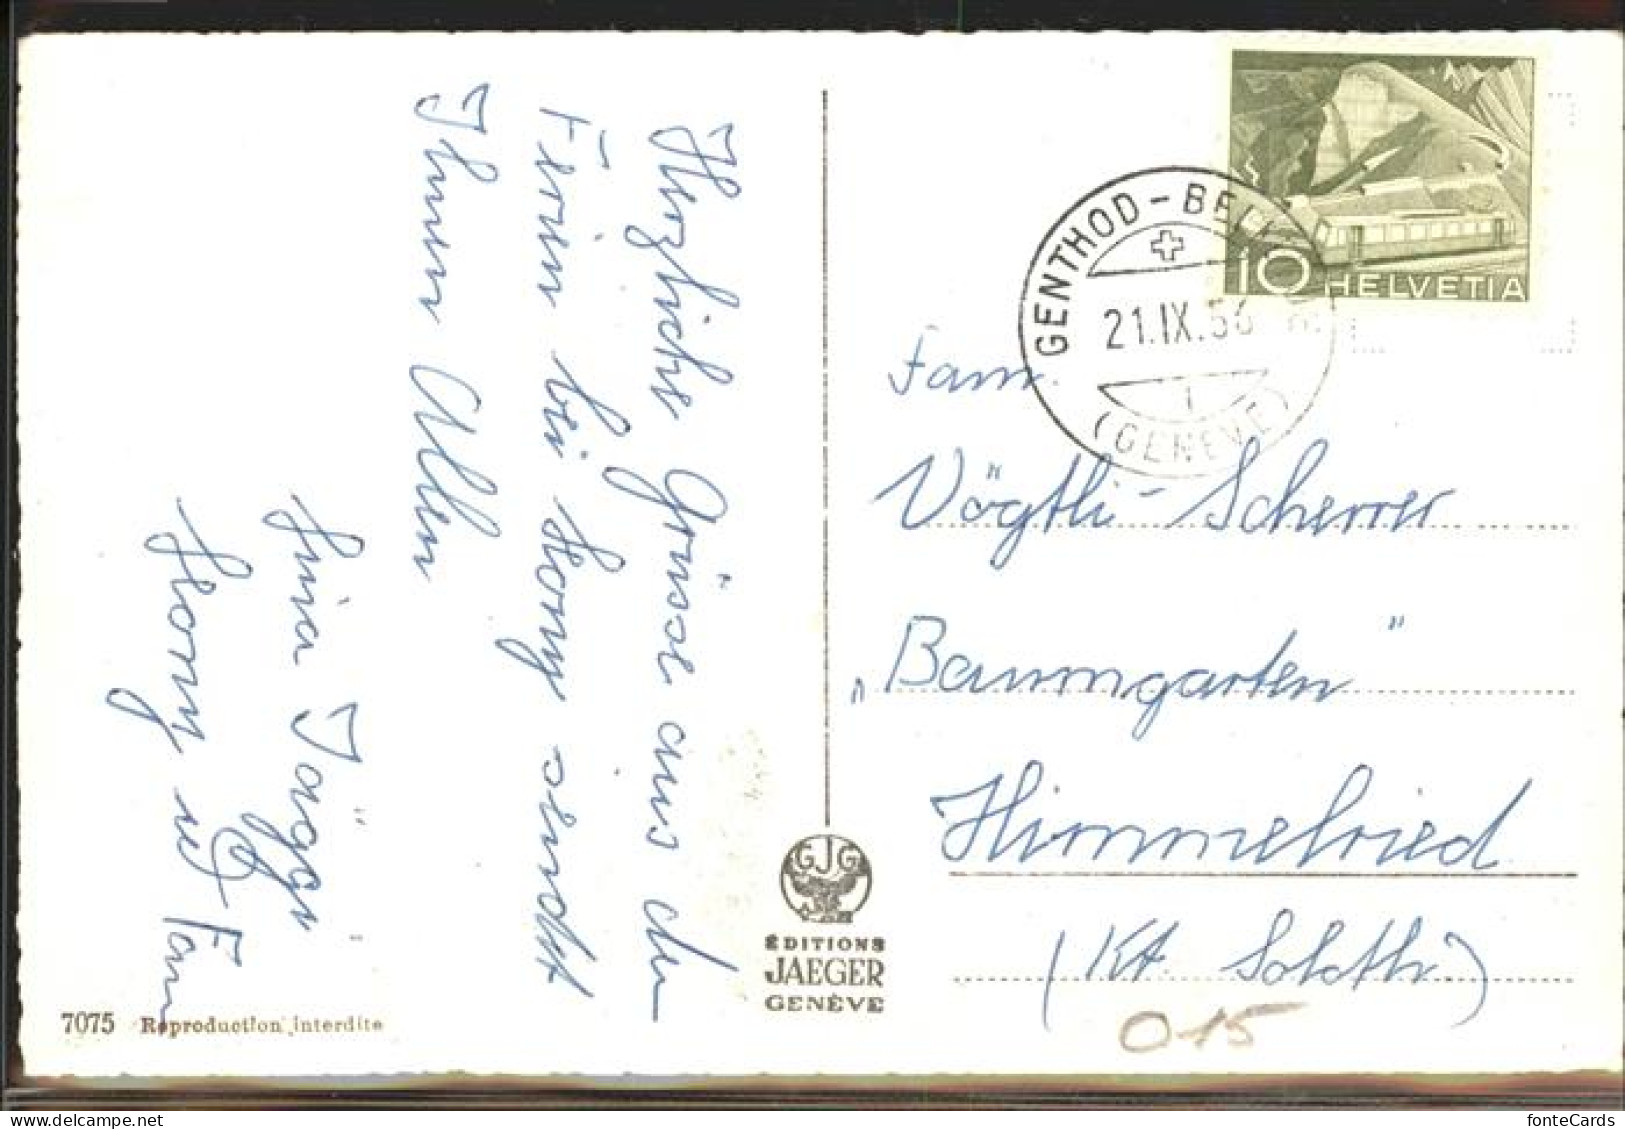 Herzliche Grüsse aus den
Ferien bei Hony sendet
Ihnen Allen
Lina Jäggi
Hony u Fam
7075 Reproduction interdite
GJG
ÉDITIONS
JAEGER
GENÈVE
10 HELVETIA
GENTHOD-BEL
21.IX.56
1
(GENÈVE)
Fam.
Vögtli-Scherrer
„Baumgarten"
Himmelried
(Kt. Soloth.)
015
delcampe.net
fonteCards